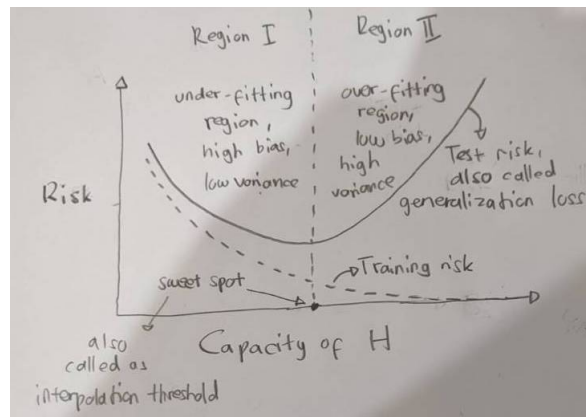 Region I
Region II
under-fitting
region,
high bias,
low variance
over-fitting
region,
low bias,
high
variance
Test risk,
also called
generalization loss
Risk
Training risk
sweet spot
also
called as
interpolation threshold
Capacity of H